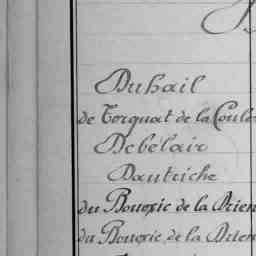 Duhail
de Torquat de la Couler
Debelair
Dautriche
du Bouexic de la Drien
du Bouexic de la Drien